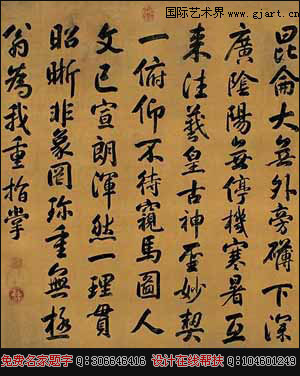 国际艺术界 www.gjart.cn
崑侖大無外旁礴下深
廣陰陽無停機寒暑互
來往羲皇古神聖妙契
一俯仰不待窺馬圖人
文已宣朗渾然一理貫
昭晰非象罔珍重無極
翁為我重指掌
免费名家题字 Q:306646416 设计在线帮扶 Q:104601249